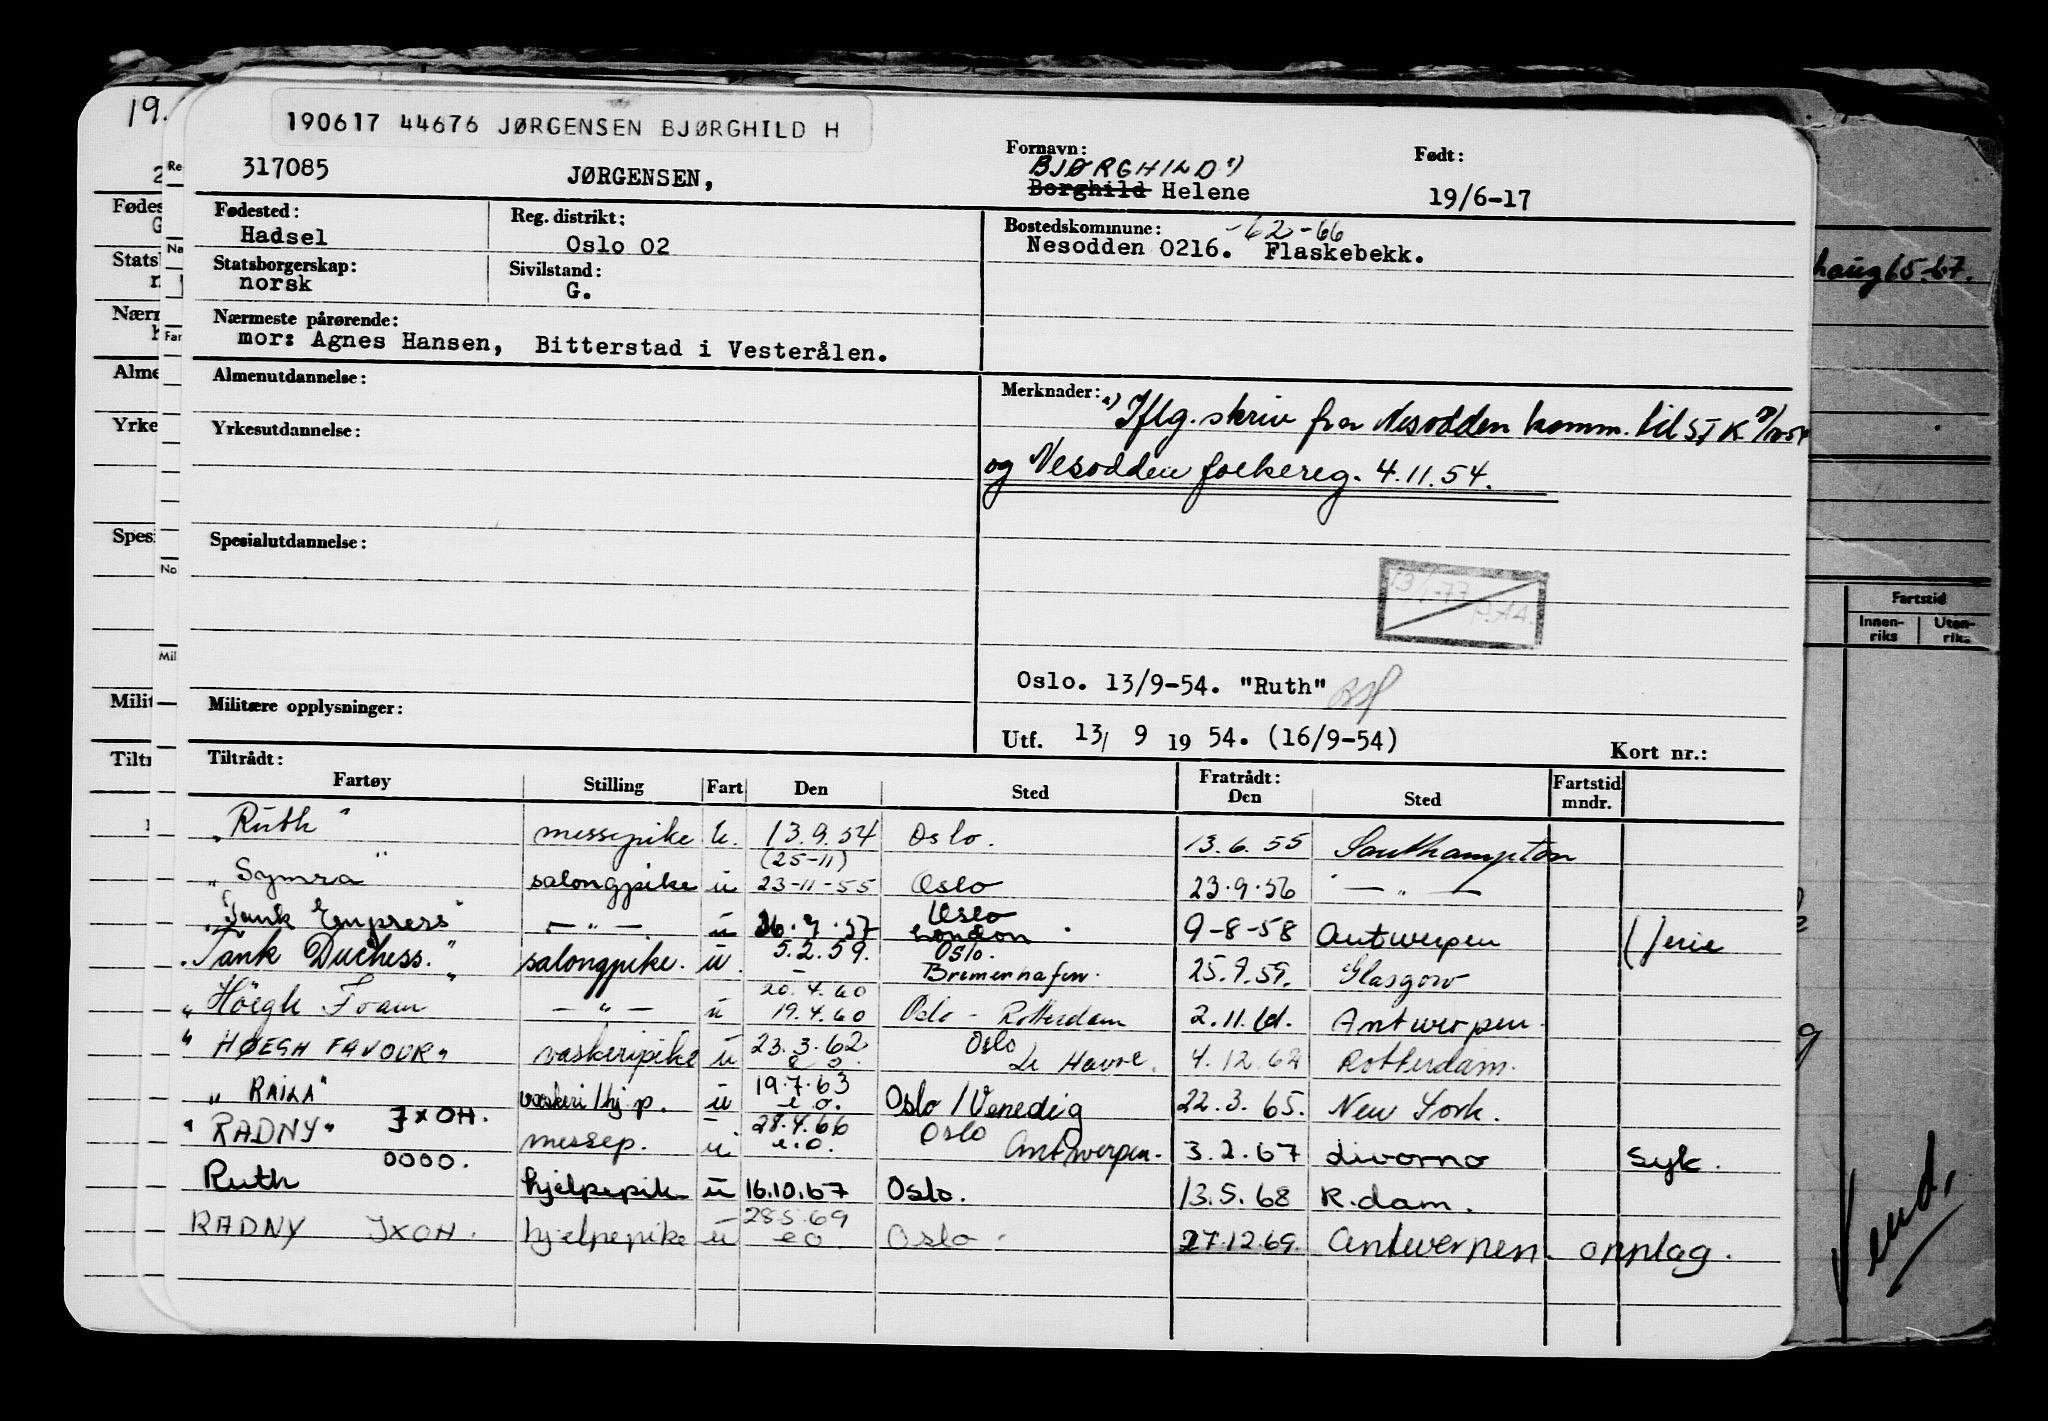 19.
190617 44676 JØRGENSEN BJØRGHILD H
317085 JØRGENSEN,
Fornavn: BJØRGHILD ¹)
Borghild Helene
Født: 19/6-17
Fødested: Hadsel
Reg. distrikt: Oslo 02
Bostedskommune: -62-66
Nesodden 0216. Flaskebekk.
Statsborgerskap: norsk
Sivilstand: G.
haug 65-67.
Nærmeste pårørende:
mor: Agnes Hansen, Bitterstad i Vesterålen.
Almenutdannelse:
Merknader: ¹) Iflg. skriv fra Nesodden komm. til
og Nesodden folkereg. 4.11.54.
Yrkesutdannelse:
Spesialutdannelse:
13/1-77 P.AA.
Fartstid
Innen-riks Uten-riks
Oslo. 13/9-54. "Ruth"
Militære opplysninger:
Utf. 13/ 9 19 54. (16/9-54) Kort nr.:
Tiltrådt: Fratrådt:
Fartøy Stilling Fart Den Sted Den Sted Fartstid mndr.
"Ruth" messepike u. 13.9.54 Oslo. 13.6.55 Southampton
"Symra" salongpike u (25-11) 23-11-55 Oslo 23.9.56 — " —
"Tank Empress" — " — u 26.7.57 Oslo London 9-8-58 Antwerpen ferie
"Tank Duchess." salongpike. u. 5.2.59. Oslo. Bremerhafen. 25.9.59. Glasgow
"Höegh Foam — " — u 20.4.60 19.4.60 Oslo - Rotterdam 2.11.61. Antwerpen.
"HØEGH FAVOUR" vaskeripike u 23.3.62 Oslo Le Havre. 4.12.62 Rotterdam.
"RAILA" vaskeri/hj.p. u 19.7.63 e.o. Oslo/Venedig 22.3.65. New York.
"RADNY" JXOH. messep. u 28.4.66 e.o. Oslo Antwerpen. 3.2.67 Livorno syk.
Ruth OOOO. hjelpepike u 16.10.67 Oslo. 13.5.68 R.dam.
RADNY JXOH. hjelpepike u 28.5.69 eo Oslo. 27.12.69. Antwerpen. opplag.
Vend.